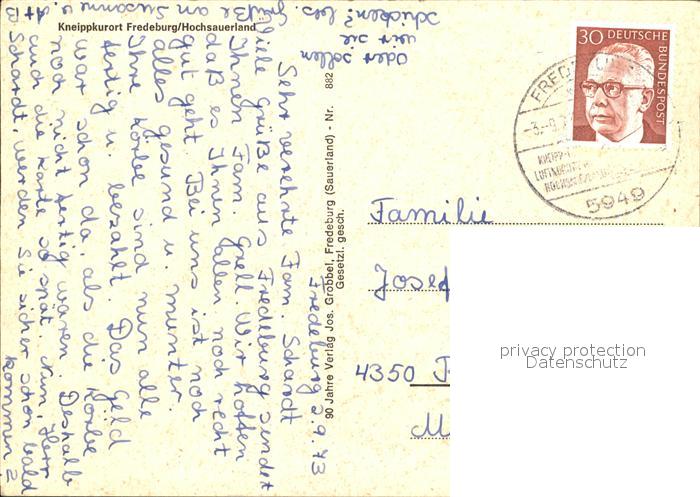 Kneippkurort Fredeburg/Hochsauerland
Fredeburg 2.9.73
Sehr verehrte Fam. Schardt
Viele Grüße aus Fredeburg sendet
Ihnen Fam. Grell. Wir hoffen
daß es Ihnen allen noch recht
gut geht. Bei uns ist noch
alles gesund u. munter.
Ihre Körbe sind nun alle
fertig u. bezahlt. Das Geld
war schon da, als die Körbe
noch nicht fertig waren. Deshalb
auch die Karte so spät. Nun, Herr
Schardt, werden Sie sicher schon bald
kommen?
Oder sollen
wir sie
schicken? bes. Grüße an Susanne u.
90 Jahre Verlag Jos. Grobbel, Fredeburg (Sauerland) - Nr. 882
Gesetzl. gesch.
30 DEUTSCHE
BUNDESPOST
5949
Familie
Josef
4350
privacy protection
Datenschutz